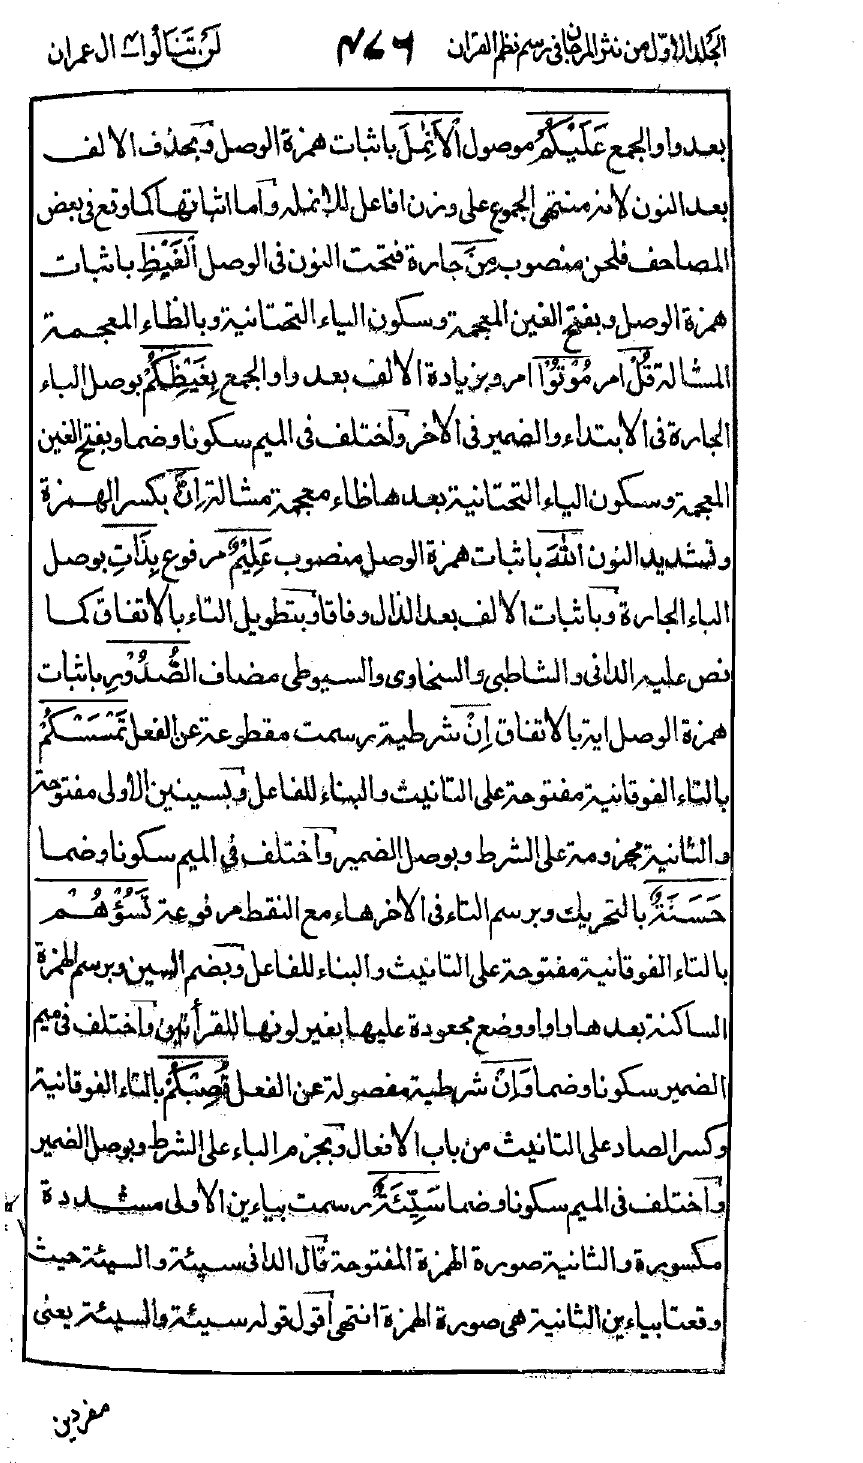 الجلد الاول من نثر المرجان فى رسم نظم القران ٤٧٦ لن تنالوا ٤ ال عمران
بعد واو الجمع عَلَيْكُمُ موصول الْاَنَمِلَ باثبات همزة الوصل وبحذف الالف
بعد النون لانه منتهى الجموع على وزن افاعل للانمله واما اثباتها كما وقع فى بعض
المصاحف فلحن منصوب مِنَ جارة فتحت النون فى الوصل الْغَيْظِ باثبات
همزة الوصل وبفتح الغين المعجمة وسكون الياء التحتانية وبالظاء المعجمة
المشالة قُلْ امر مُوْتُوْا امر وبزيادة الالف بعد واو الجمع بِغَيْظِكُمْ بوصل الباء
الجارة فى الابتداء والضمير فى الاخر واختلف فى الميم سكونا وضما وبفتح الغين
المعجمة وسكون الياء التحتانية بعدها ظاء معجمة مشالة اِنَّ بكسر الهمزة
وتشديد النون اللهَ باثبات همزة الوصل منصوب عَلِيْمٌ مرفوع بِذَاتِ بوصل
الباء الجارة وباثبات الالف بعد الذال وفاقا وبتطويل التاء بالاتفاق كما
نص عليه الدانى والشاطبى والسخاوى والسيوطى مضاف الصُّدُوْرِ باثبات
همزة الوصل اية بالاتفاق اِنْ شرطية رسمت مقطوعة عن الفعل تَمْسَسْكُمْ
بالتاء الفوقانية مفتوحة على التانيث والبناء للفاعل وبسينين الاولى مفتوحة
والثانية مجزومة على الشرط وبوصل الضمير واختلف فى الميم سكونا وضما
حَسَنَةٌ بالتحريك وبرسم التاء فى الاخرهاء مع النقط مرفوعة تَسُؤْهُمْ
بالتاء الفوقانية مفتوحة على التانيث والبناء للفاعل وبضم السين وبرسم الهمزة
الساكنة بعدها واوا ووضع مجعودة عليها بغير لونها للقرأتين واختلف فى ميم
الضمير سكونا وضما وَاِنْ شرطية مفصولة عن الفعل تُصِبْكُمْ بالتاء الفوقانية
وكسر الصاد على التانيث من باب الافعال وبجزم الباء على الشرط وبوصل الضمير
واختلف فى الميم سكونا وضما سَيِّئَةٌ رسمت بياءين الاولى مشددة
مكسورة والثانية صورة الهمزة المفتوحة قال الدانى سيئة والسيئة حيث
وقعتا بياءين الثانية هى صورة الهمزة انتهى اقول قوله سيئة والسيئة يعنى
مفردين